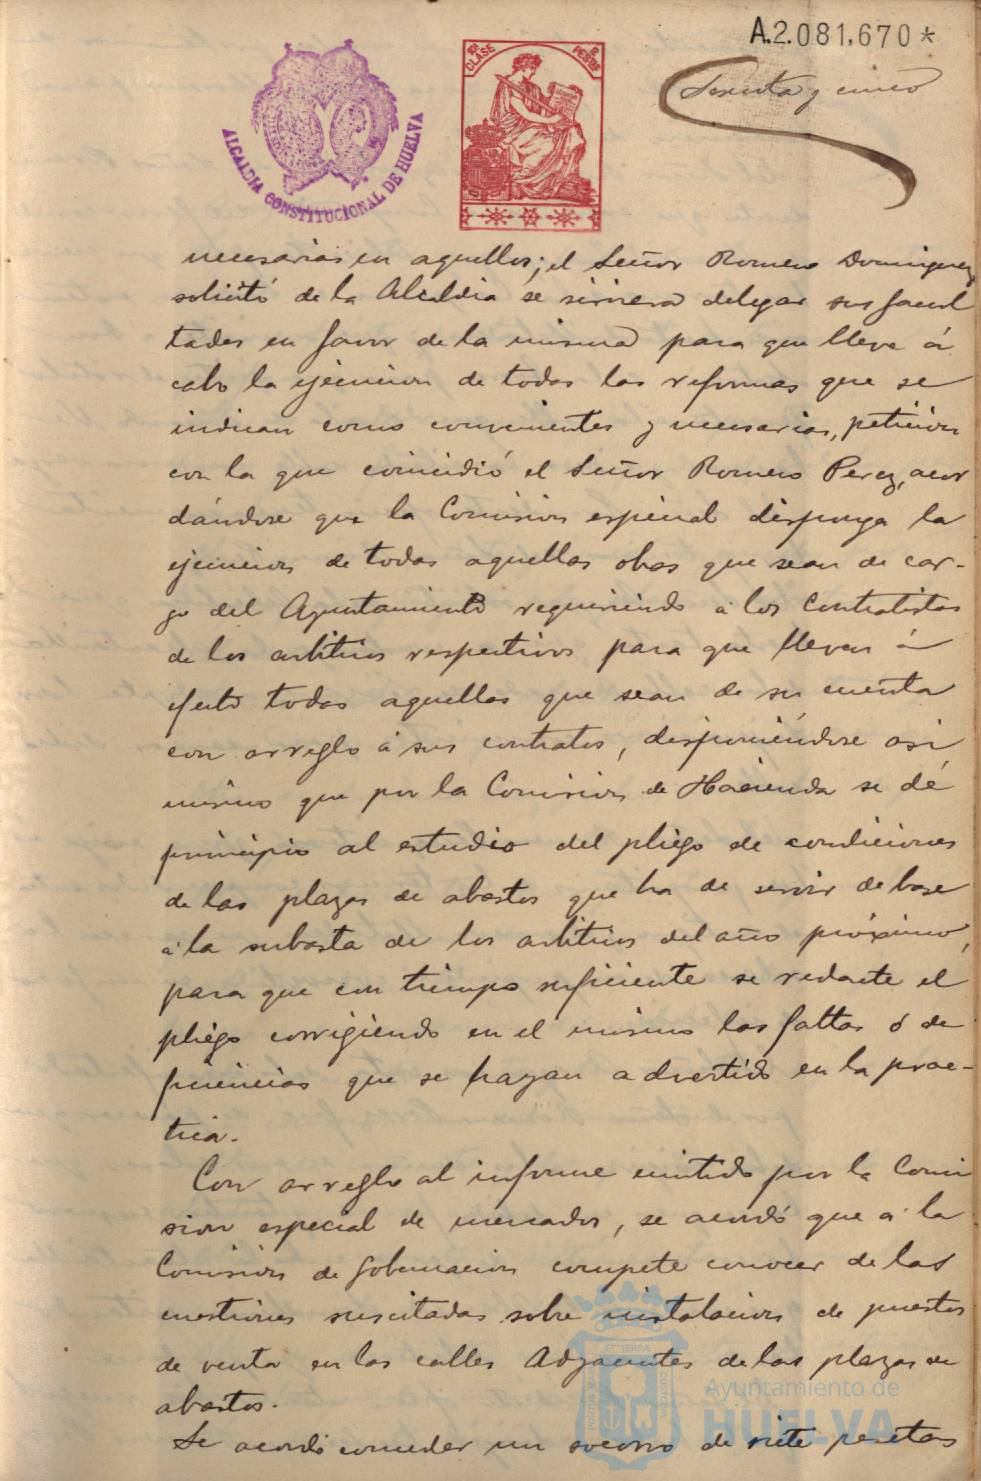 A.2.081.670*
Sesenta y cinco
10ª CLASE
2 PESETAS
ALCALDIA CONSTITUCIONAL DE HUELVA
necesarias en aquellos; el Señor Romero Dominguez
solicitó de la Alcaldia se sirviera delegar sus facul
tades en favor de la misma para que lleve á
cabo la ejecucion de todas las reformas que se
indican como convenientes y necesarias, peticion
con la que coincidió el Señor Romero Perez, acor
dándose que la Comision especial disponga la
ejecucion de todas aquellas obras que sean de car-
go del Ayuntamiento requiriendo á los contratistas
de los arbitrios respectivos para que lleven á
efecto todas aquellas que sean de su cuenta
con arreglo á sus contratos, disponiéndose asi
mismo que por la Comision de Hacienda se dé
principio al estudio del pliego de condiciones
de las plazas de abastos que ha de servir de base
á la subasta de los arbitrios del año próximo,
para que con tiempo suficiente se redacte el
pliego corrigiendo en el mismo las faltas ó de
ficiencias que se hayan advertido en la prac-
tica.
Con arreglo al informe emitido por la Comi
sion especial de mercados, se acordó que á la
Comision de Gobernacion compete conocer de las
cuestiones suscitadas sobre instalacion de puestos
de venta en las calles Adyacentes de las plazas de
abastos.
Se acordó conceder un socorro de siete pesetas
Ayuntamiento de
HUELVA